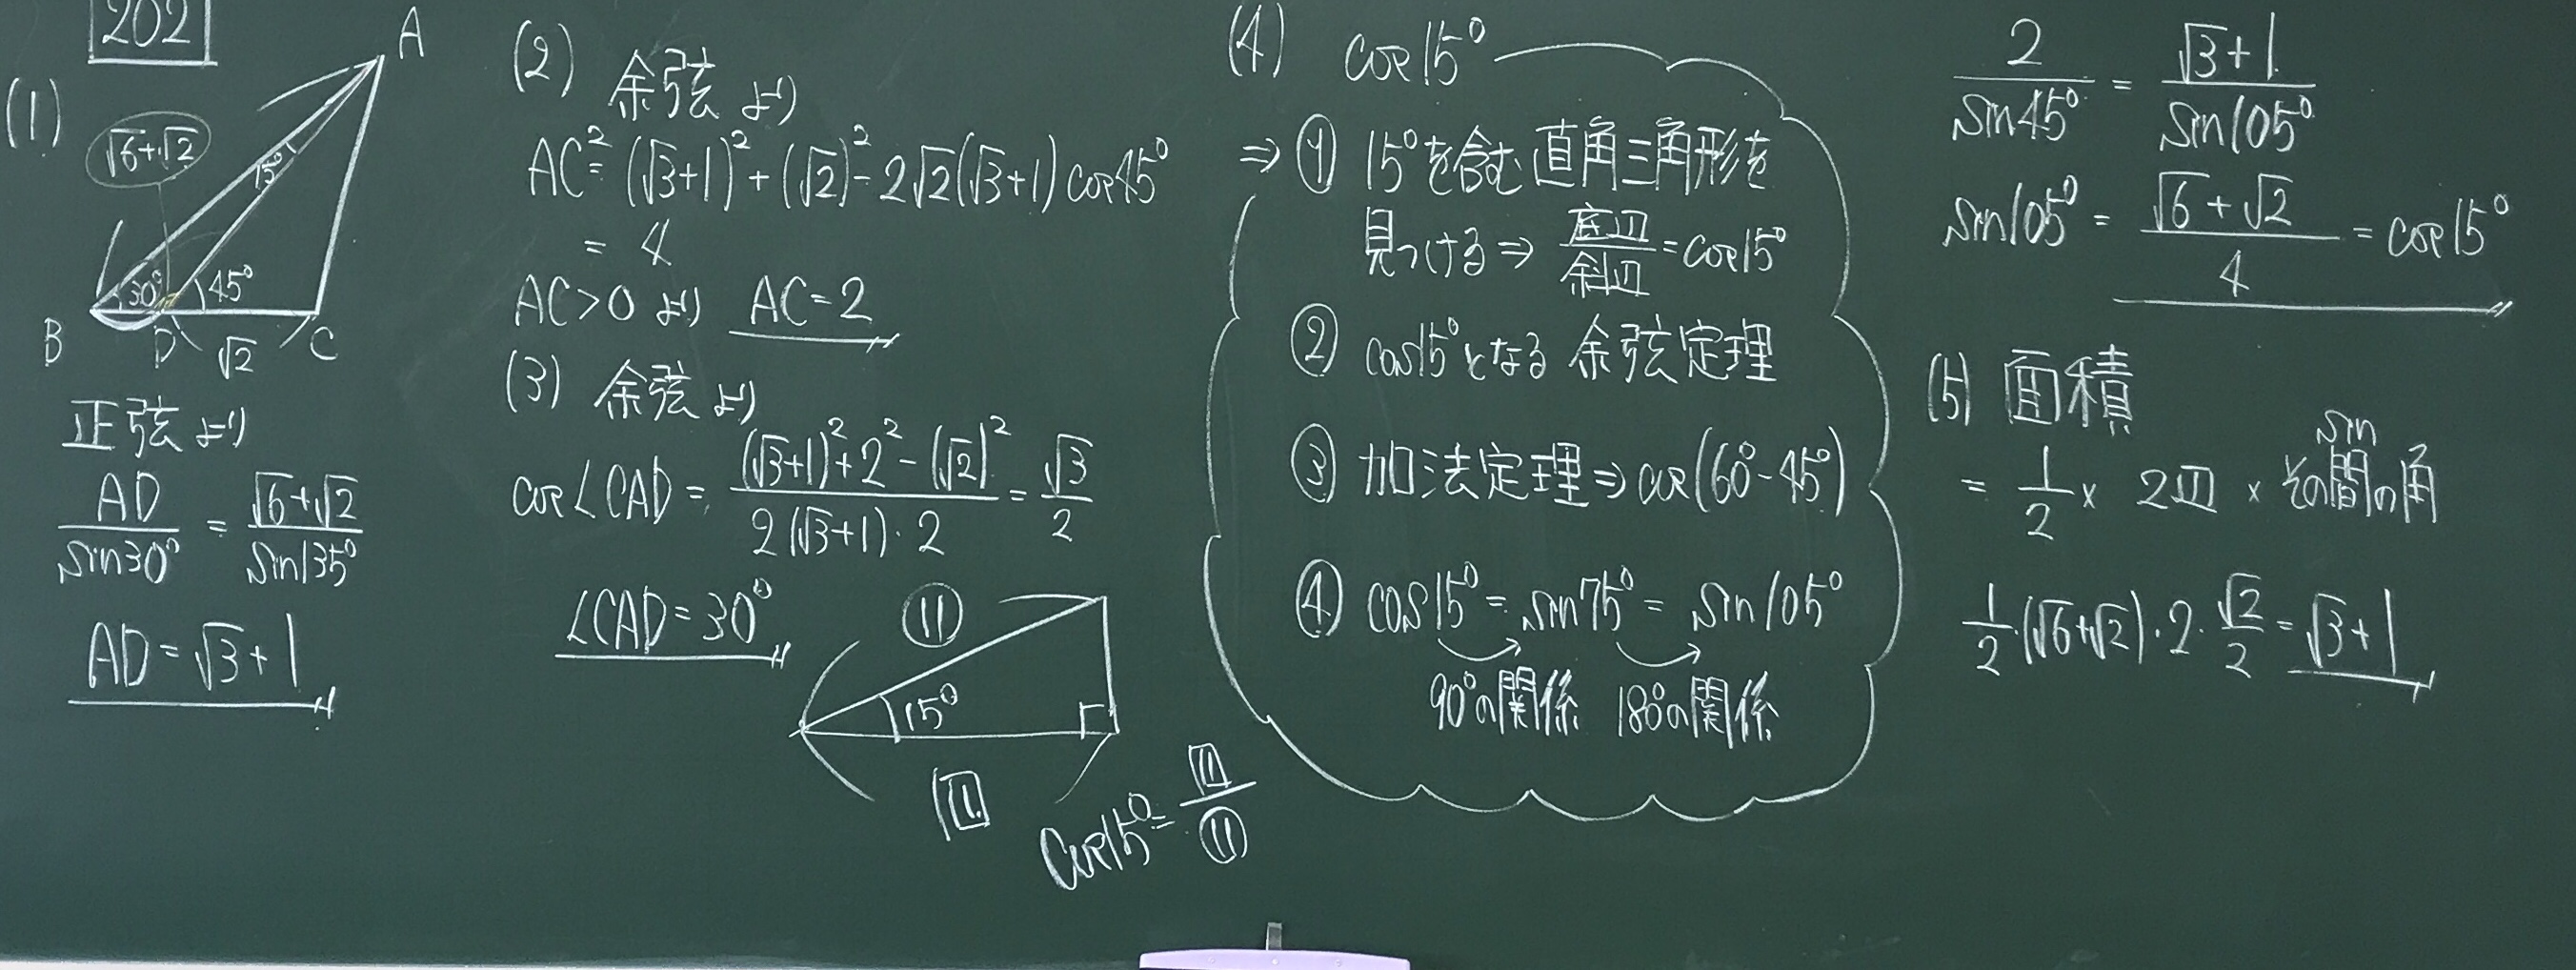 202
(1)
A
√6+√2
15°
30°
45°
B
D
√2
C
正弦より
AD/sin30° = (√6+√2)/sin135°
AD=√3+1
(2) 余弦より
AC²=(√3+1)²+(√2)²-2√2(√3+1)cos45°
= 4
AC>0より AC=2
(3) 余弦より
cos∠CAD = ((√3+1)²+2²-(√2)²)/(2(√3+1)·2) = √3/2
∠CAD=30°
⑪
15°
cos15°=
(4) cos15°
⇒ ① 15°を含む直角三角形を
見つける⇒ 底辺/斜辺=cos15°
② cos15°となる余弦定理
③ 加法定理⇒cos(60°-45°)
④ cos15°=sin75°=sin105°
90°の関係 180°の関係
2/sin45° = (√3+1)/sin105°
sin105° = (√6+√2)/4 = cos15°
(5) 面積
sin
= 1/2 × 2辺 × その間の角
1/2·(√6+√2)·2·√2/2=√3+1